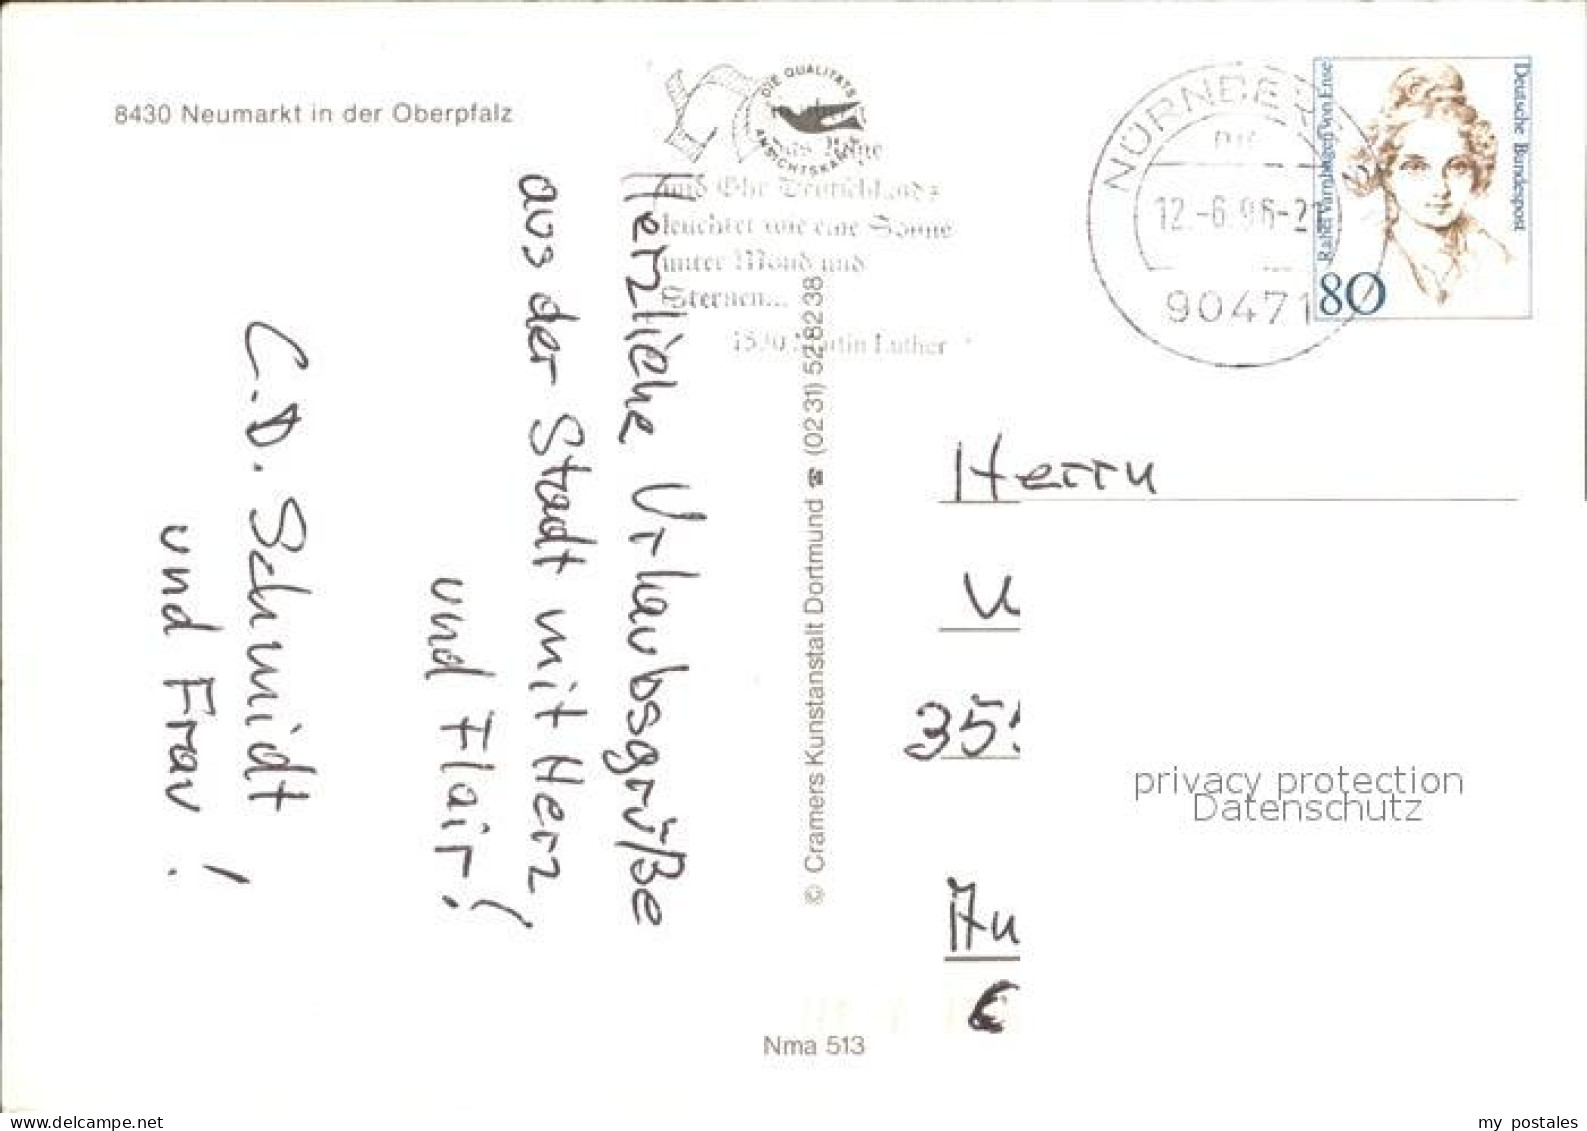 8430 Neumarkt in der Oberpfalz
DIE QUALITÄTS
ANSICHTSKARTE
und Ehr Deutschlands
leuchtet wie eine Sonne
unter Mond und
Sternen...
Martin Luther
NÜRNBERG
12.-6.96-21
90471
Deutsche Bundespost
Rahel Varnhagen von Ense
80
Herzliche Urlaubsgrüße
aus der Stadt mit Herz
und Flair!
C.D. Schmidt
und Frau!
© Cramers Kunstanstalt Dortmund ☎ (0231) 528238
Herrn
privacy protection
Datenschutz
Nma 513
www.delcampe.net
my_postales